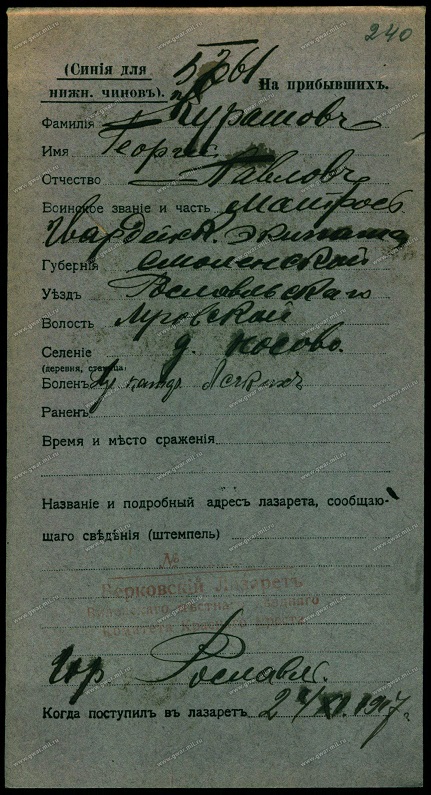 240
(Синія для
нижн. чиновъ).
5761
На прибывшихъ.
Фамилія Курашовъ
Имя Георгій
Отчество Павловъ
Воинское званіе и часть Матросъ
Гвардейск. Экипажа
Губернія Смоленской
Уѣздъ Рославльскаго
Волость Луговской
Селеніе д. Косово.
(деревня, станица)
Боленъ катар
Раненъ
Время и мѣсто сраженія
Названіе и подробный адресъ лазарета, сообщаю-
щаго свѣдѣнія (штемпель)
№
Лазаретъ
Комитета Краснаго Креста
гор. Рославль.
Когда поступилъ въ лазаретъ 24/XI. 1917 г.
www.gwar.mil.ru